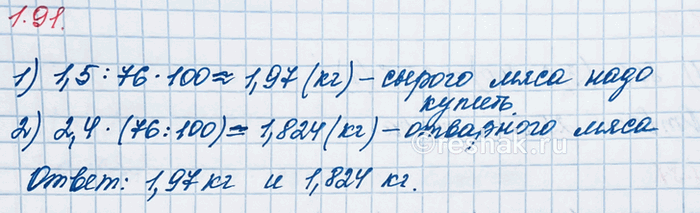 1.91.
1) 1,5 : 76 · 100 ≈ 1,97 (кг) – сырого мяса надо
купить
2) 2,4 · (76 : 100) = 1,824 (кг) – отварного мяса
reshak.ru
Ответ: 1,97 кг и 1,824 кг.